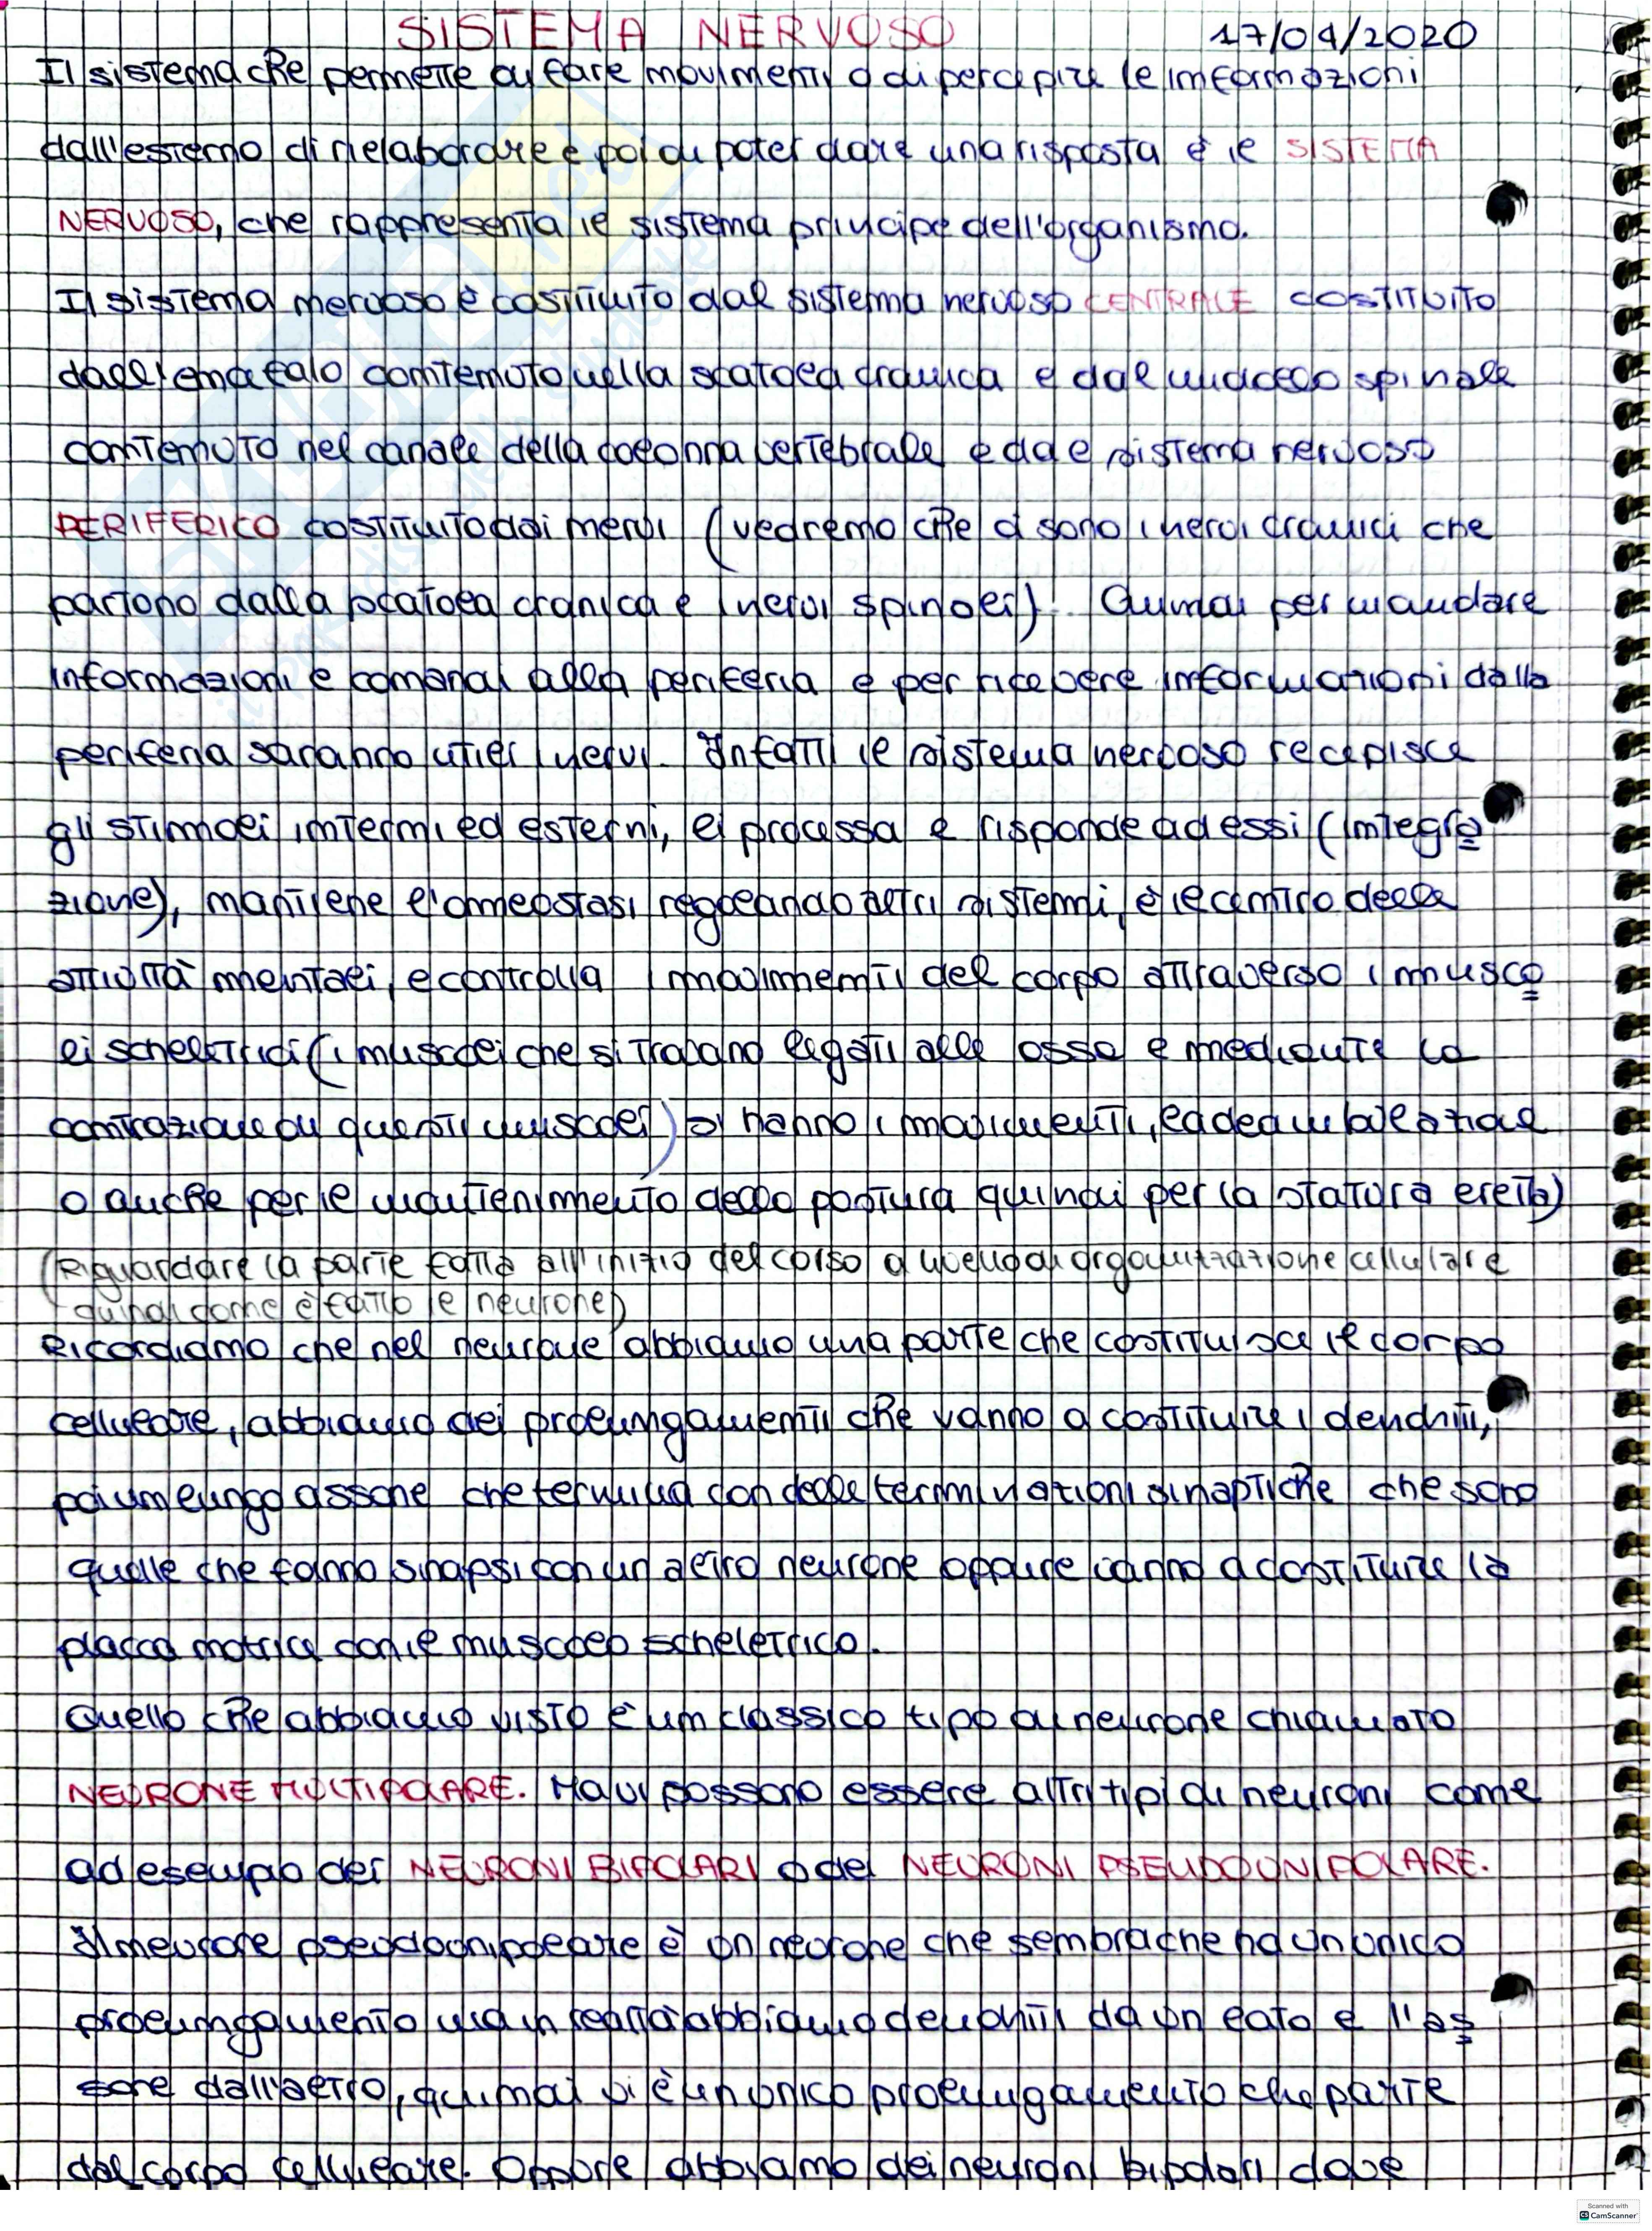 SISTEMA NERVOSO 17/04/2020
Il sistema che permette di fare movimenti o di percepire le informazioni
dall'esterno di rielaborare e poi di poter dare una risposta è il SISTEMA
NERVOSO, che rappresenta il sistema principe dell'organismo.
Il sistema nervoso è costituito dal sistema nervoso CENTRALE costituito
dall'encefalo contenuto nella scatola cranica e dal midollo spinale
contenuto nel canale della colonna vertebrale e dal sistema nervoso
PERIFERICO costituito dai nervi (vedremo che ci sono i nervi cranici che
partono dalla scatola cranica e i nervi spinali). Quindi per mandare
informazioni e comandi alla periferia e per ricevere informazioni dalla
periferia saranno utili i nervi. Infatti il sistema nervoso recepisce
gli stimoli interni ed esterni, li processa e risponde ad essi (integra
zione), mantiene l'omeostasi regolando altri sistemi, è il centro delle
attività mentali, e controlla i movimenti del corpo attraverso i musco
li scheletrici (i muscoli che si trovano legati alle ossa e mediante la
contrazione di questi muscoli) si hanno i movimenti, la deambulazione
o anche per il mantenimento della postura quindi per la statura eretta)
(Riguardare la parte fatta all'inizio del corso a livello di organizzazione cellulare
quindi come è fatto il neurone)
Ricordiamo che nel neurone abbiamo una parte che costituisce il corpo
cellulare, abbiamo dei prolungamenti che vanno a costituire i dendriti,
poi un lungo assone che termina con delle terminazioni sinaptiche che sono
quelle che fanno sinapsi con un altro neurone oppure vanno a costituire la
placca motrice con il muscolo scheletrico.
Quello che abbiamo visto è un classico tipo di neurone chiamato
NEURONE MULTIPOLARE. Ma vi possono essere altri tipi di neuroni come
ad esempio dei NEURONI BIPOLARI o dei NEURONI PSEUDOUNIPOLARE.
Il neurone pseudounipolare è un neurone che sembra che ha un unico
prolungamento ma in realtà abbiamo dendriti da un lato e l'as
sone dall'altro, quindi vi è un unico prolungamento che parte
dal corpo cellulare. Oppure abbiamo dei neuroni bipolari dove
Scanned with
CS CamScanner